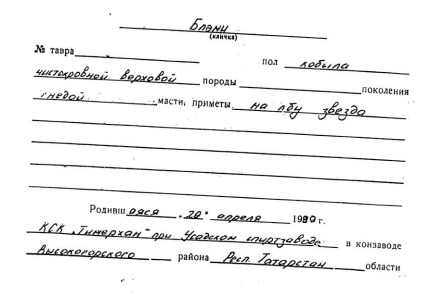 Блэми
(кличка)
№ тавра пол кобыла
чистокровной верховой породы поколения
гнедой масти, приметы на лбу звезда
Родившаяся "20" апреля 1990 г.
КСК "Тимерхан" при Усадском спиртзаводе в конзаводе
Высокогорского района Респ. Татарстан области